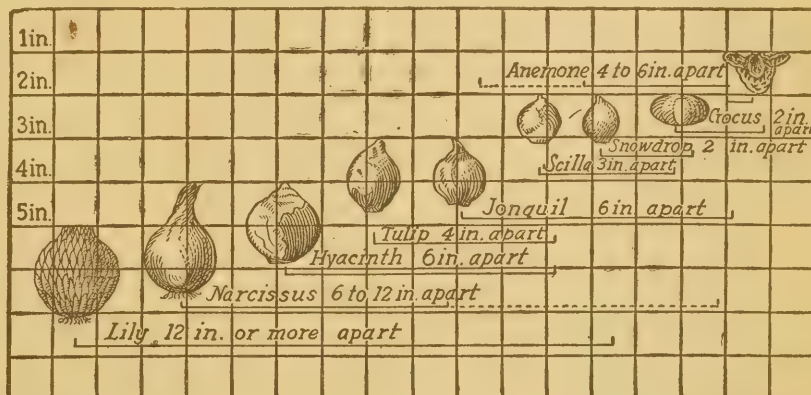 1in.
2in.
3in.
4in.
5in.
Anemone 4 to 6in. apart
Crocus 2in. apart
Snowdrop, 2 in. apart
Scilla 3in. apart
Jonquil 6in. apart
Tulip 4in. apart
Hyacinth 6in. apart
Narcissus 6 to 12 in. apart
Lily, 12 in. or more apart